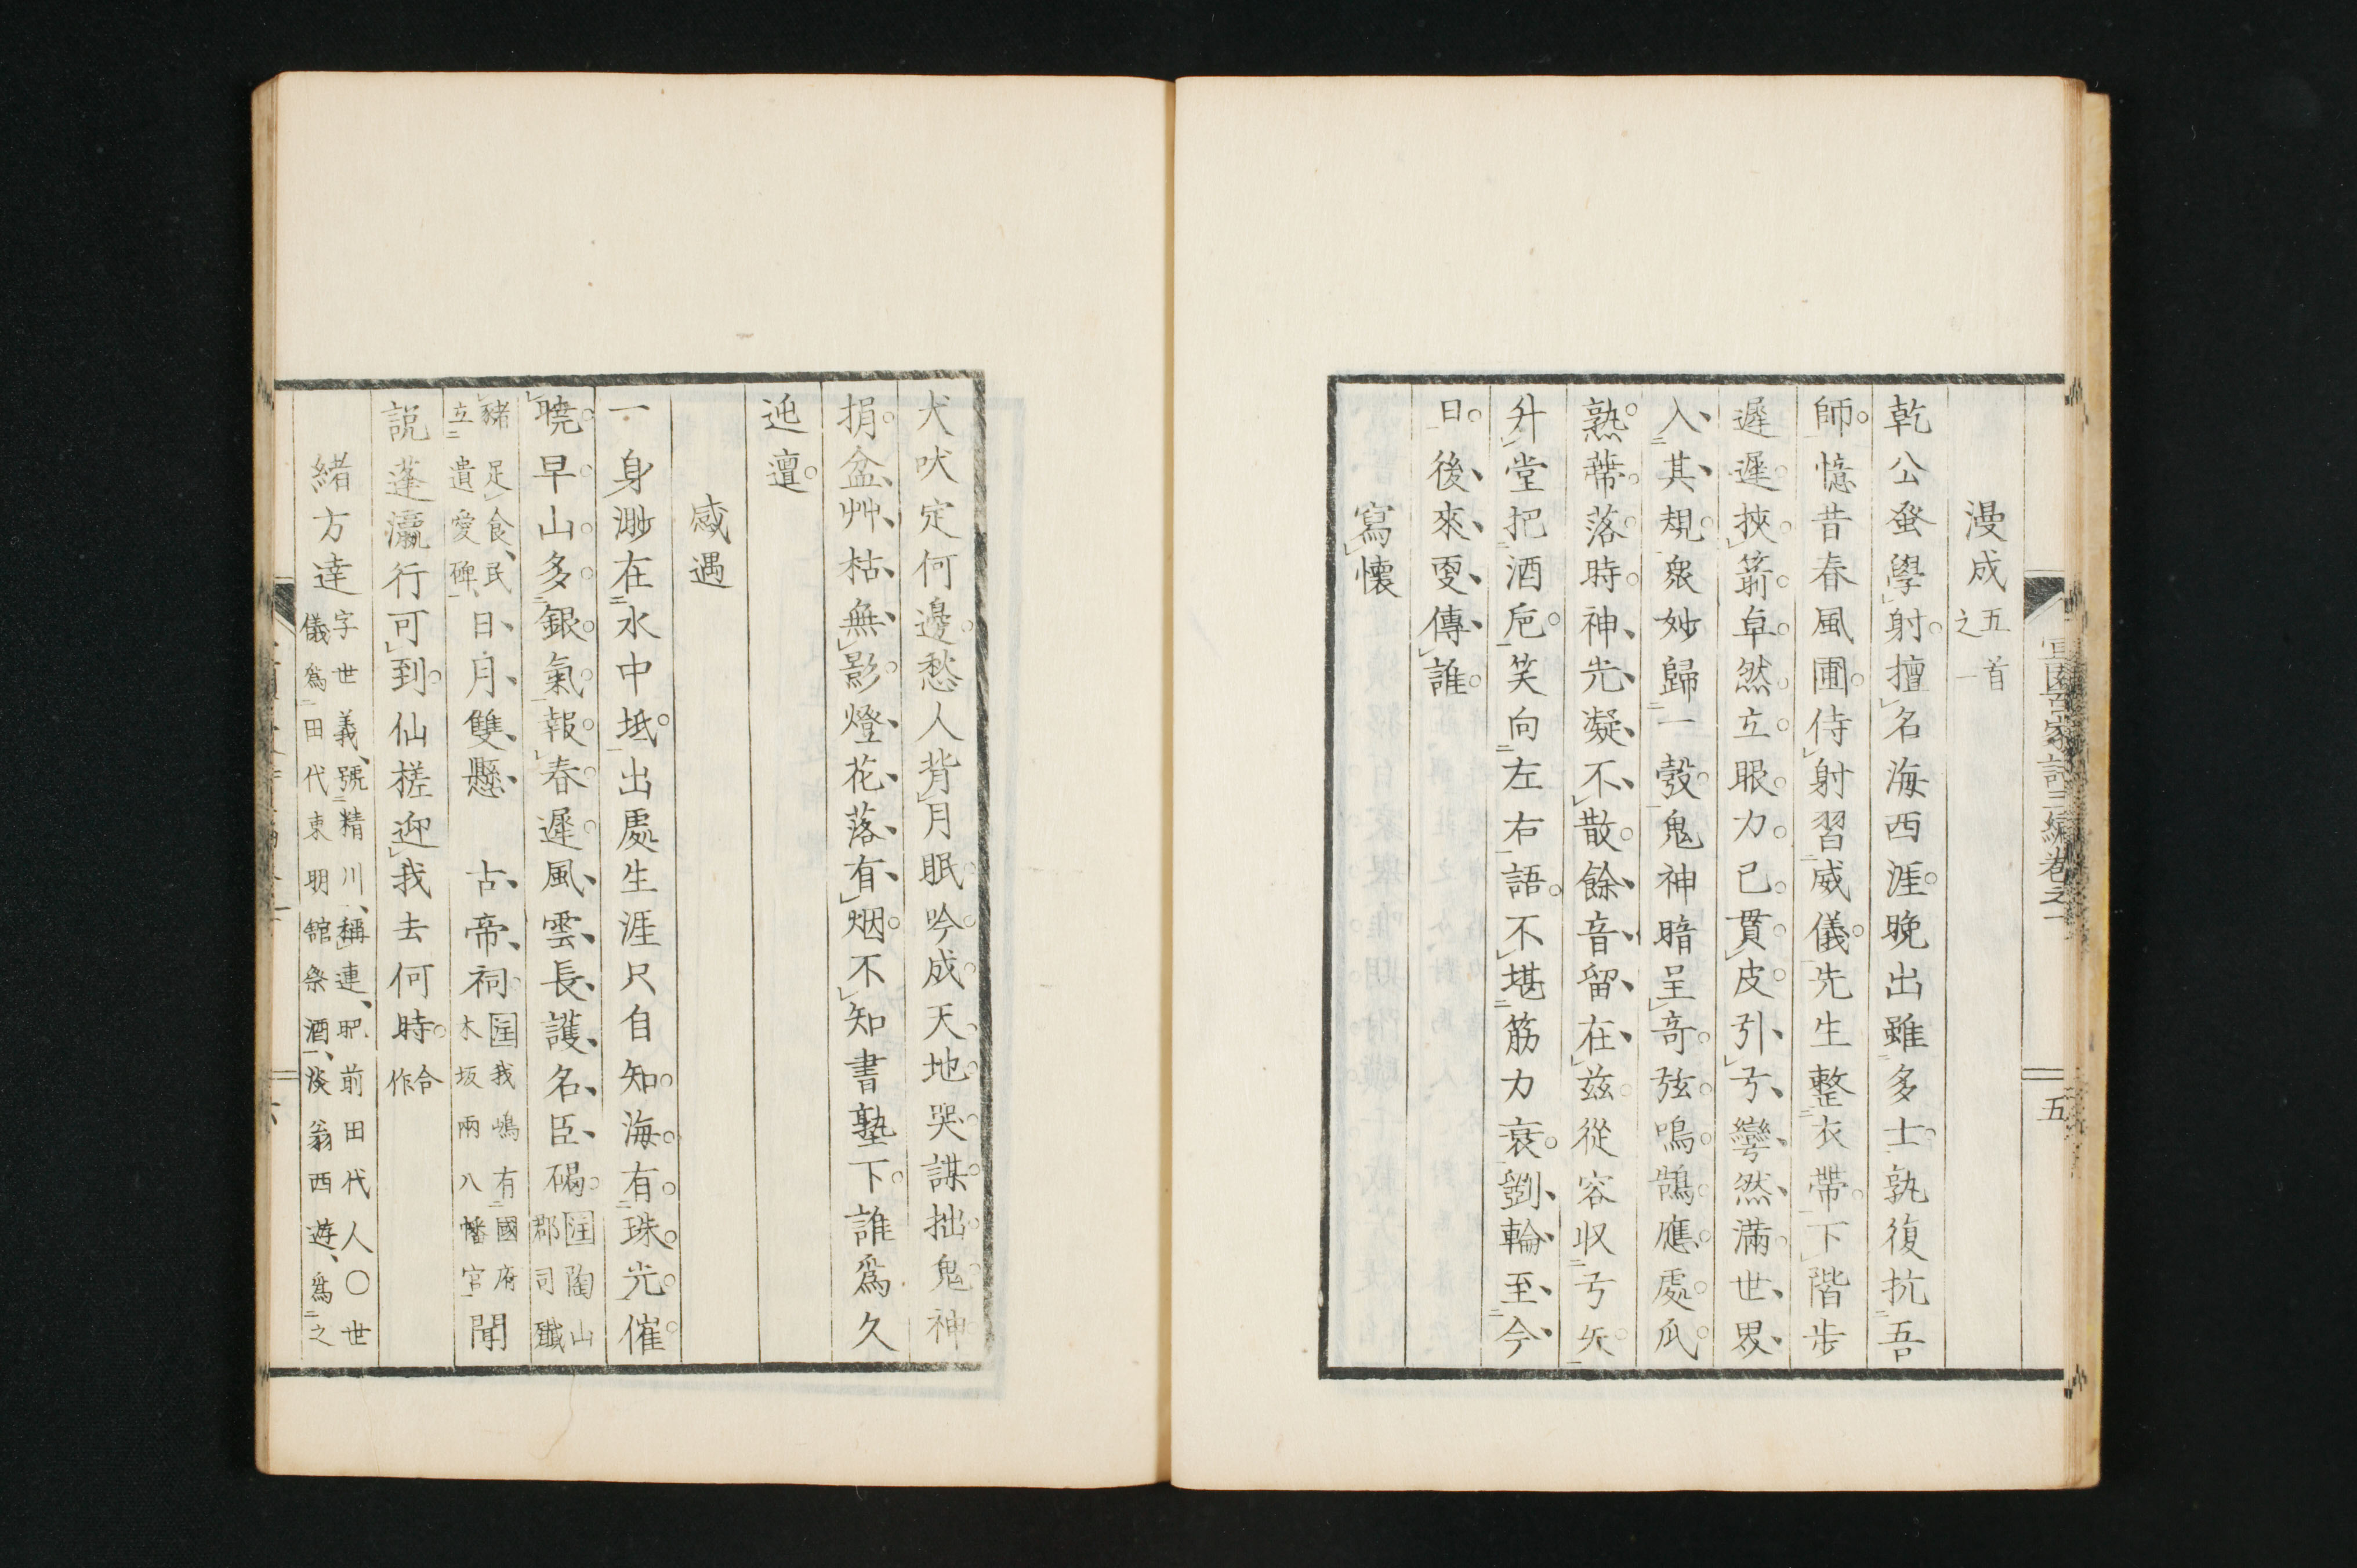 漫成五首之一
乾公發學射擅名海西涯晚出雖多士孰復抗吾
師憶昔春風圃侍射習威儀先生整衣帶下階步
遲遲挾箭卓然立眼力已貫皮引弓彎然滿世界
入其規衆妙歸一彀鬼神暗呈奇弦鳴鵠應處瓜
熟蔕落時神光凝不散餘音留在茲從容収弓矢
升堂把酒卮笑向左右語不堪筋力衰劉輪至今
日後來更傳誰
寫懷
宜園百家詩三編卷之一
五
犬吠定何邊愁人背月眠吟成天地哭謀拙鬼神
捐盆艸枯無影燈花落有烟不知書塾下誰爲久
迍邅
感遇
一身渺在水中坻出處生涯只自知海有珠光催
曉早山多銀氣報春遲風雲長護名臣碣囯陶山郡司殲
豬足食民立遺愛碑日月雙懸古帝祠囯我嶋有國府木坂兩八幡宮聞
說蓬瀛行可到仙槎迎我去何時合作
緒方達字世義號精川稱連肥前田代人〇世儀爲田代東明舘祭酒淡翁西遊爲之